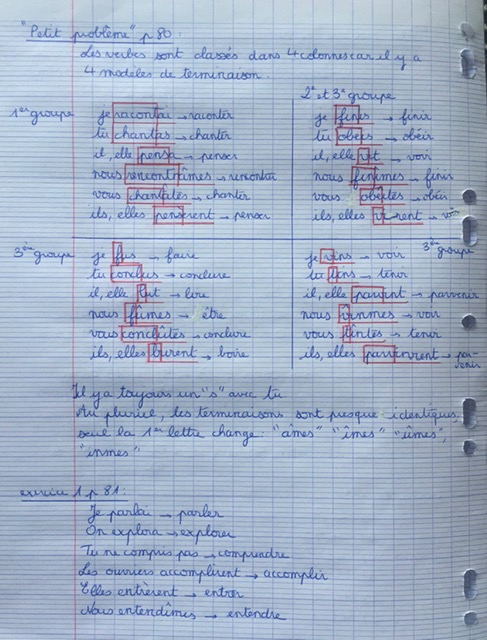 "Petit problème" p 80 :
Les verbes sont classés dans 4 colonnes car il y a
4 modèles de terminaison.
1er groupe
je racontai → raconter
tu chantas → chanter
il, elle pensa → penser
nous rencontrâmes → rencontrer
vous chantâtes → chanter
ils, elles pensèrent → penser
2e et 3e groupe
je finis → finir
tu obéis → obéir
il, elle vit → voir
nous finîmes → finir
vous obéîtes → obéir
ils, elles virent → voir
3ème groupe
je fus → faire
tu conclus → conclure
il, elle lut → lire
nous fûmes → être
vous conclûtes → conclure
ils, elles burent → boire
3ème groupe
je vins → voir
tu tins → tenir
il, elle parvint → parvenir
nous vînmes → voir
vous tîntes → tenir
ils, elles parvinrent → par-
venir
Il y a toujours un "s" avec tu
Au pluriel, les terminaisons sont presque identiques,
seul la 1er lettre change : "âmes" "îmes" "ûmes",
"inmes"
exercice 1 p 81 :
Je parlai → parler
On explora → explorer
Tu ne compris pas → comprendre
Les ouvriers accomplirent → accomplir
Elles entrèrent → entrer
Nous entendîmes → entendre